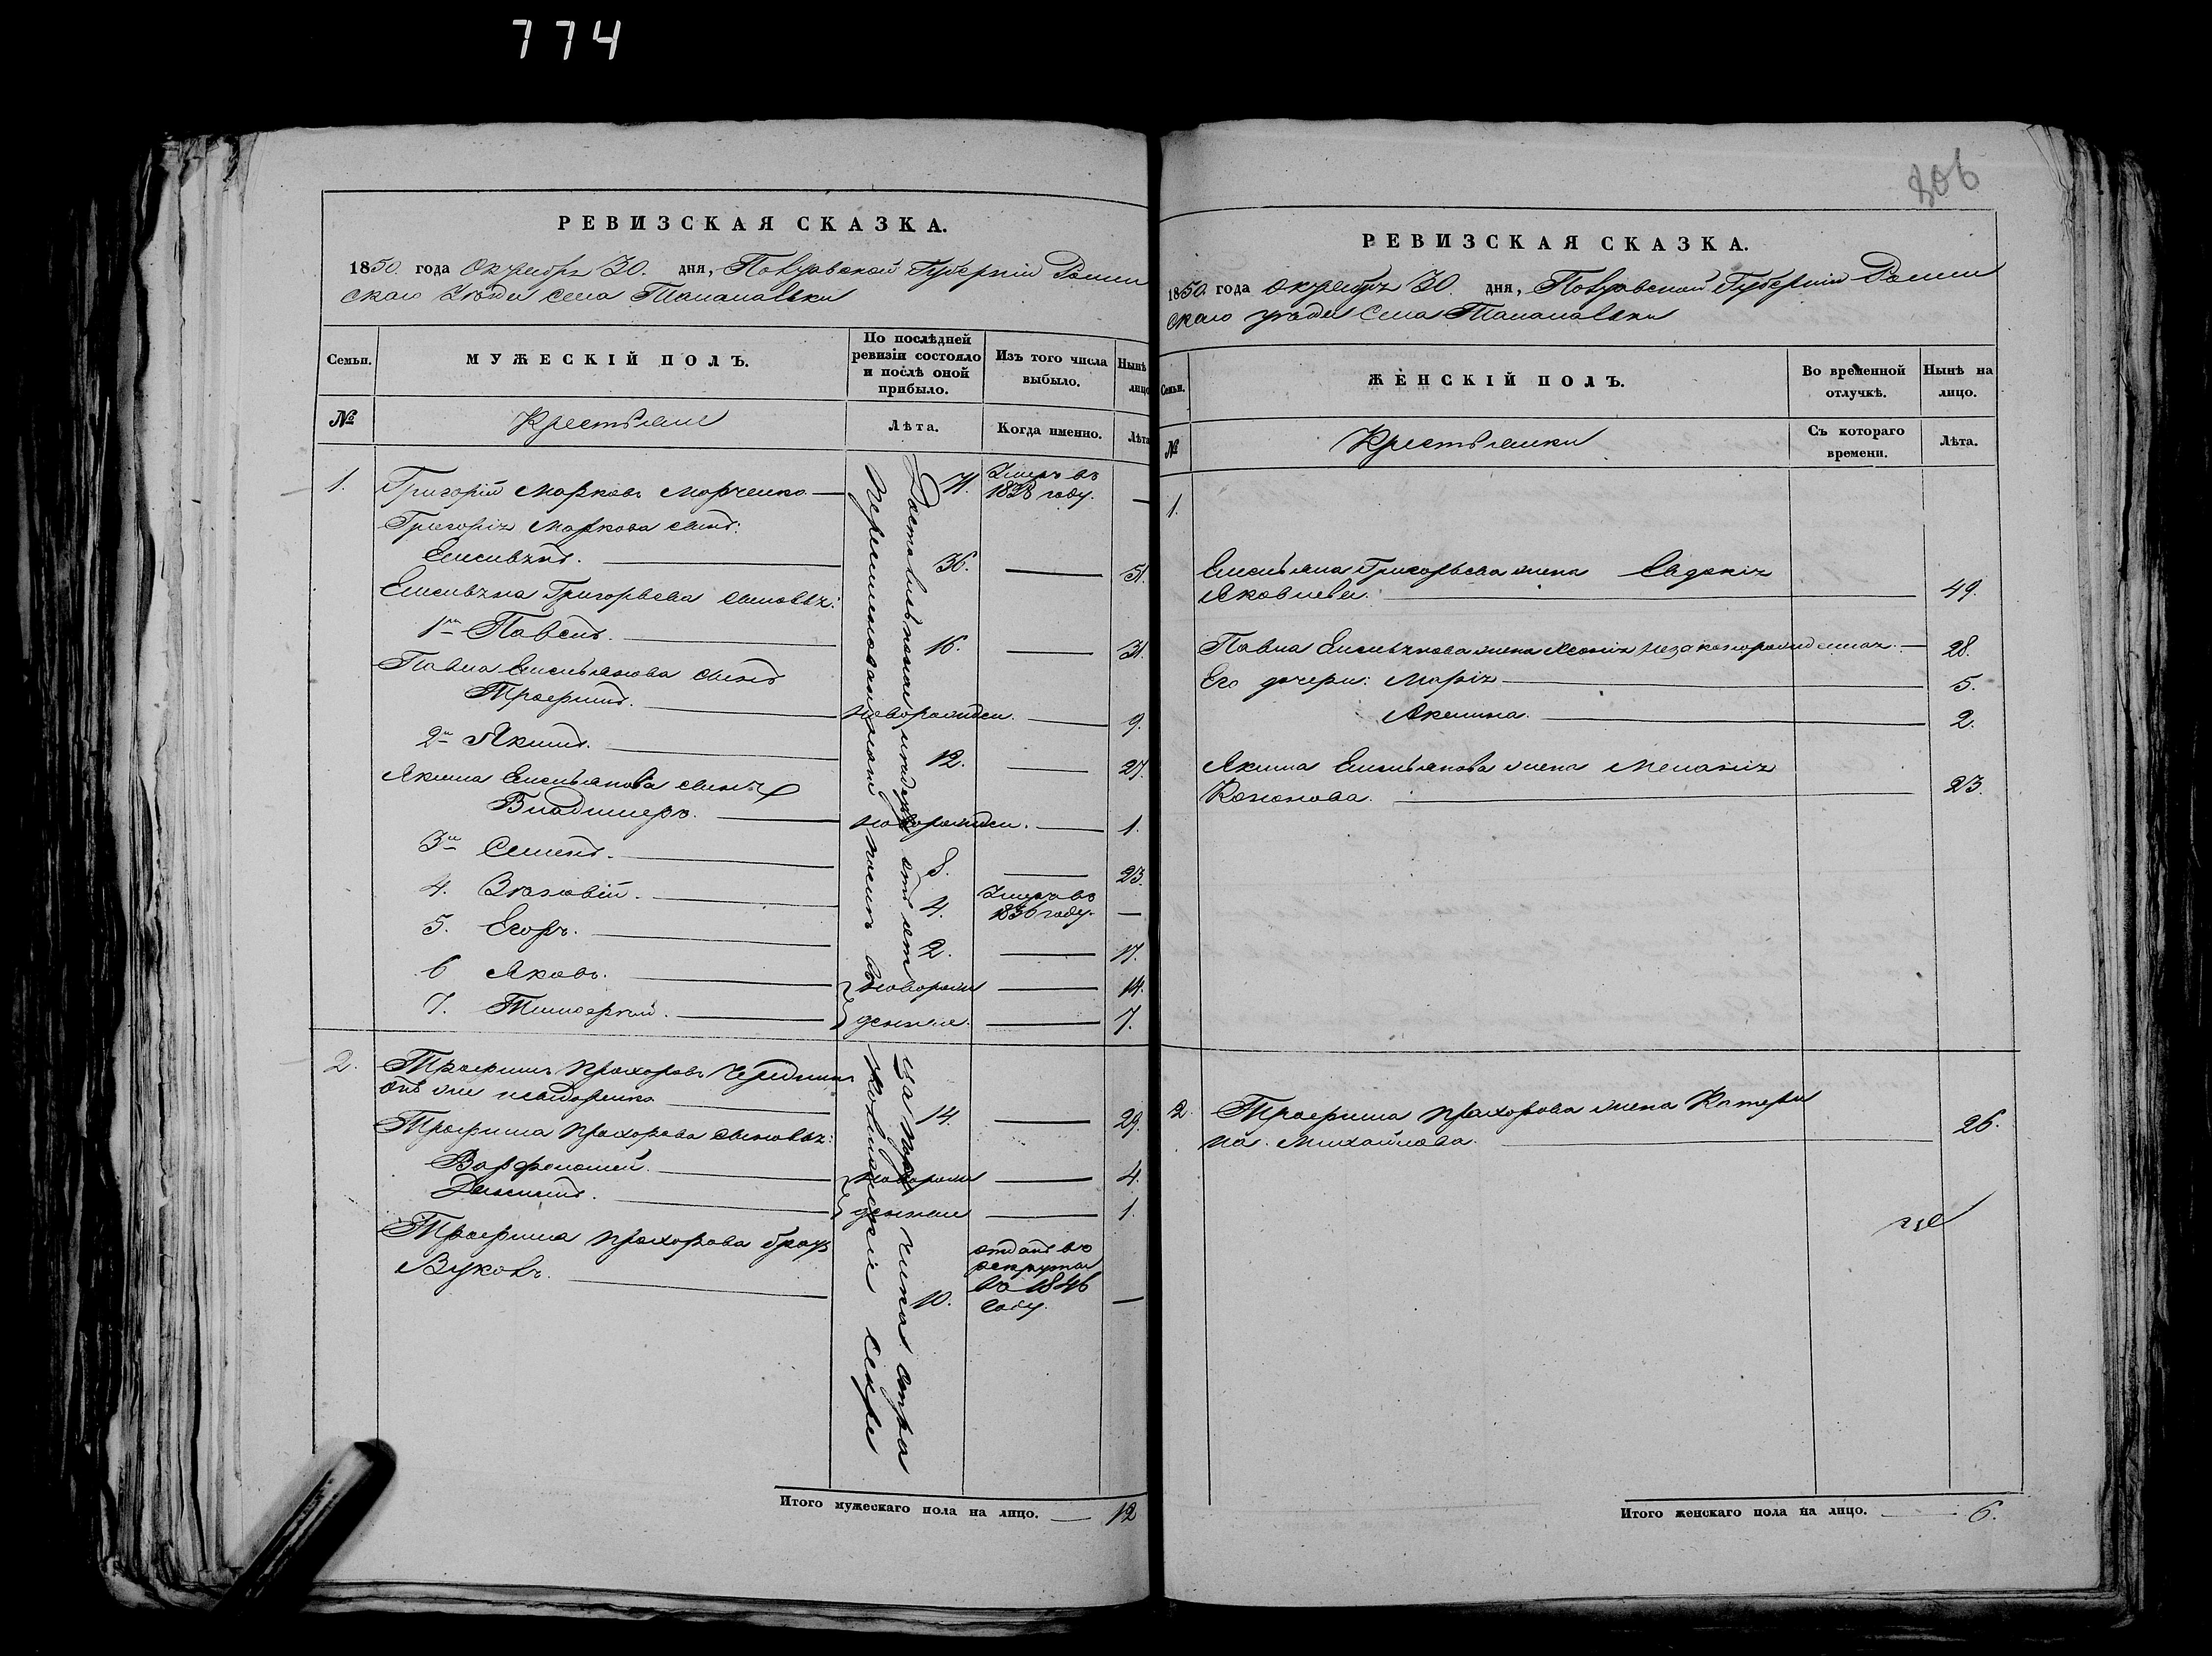 774
РЕВИЗСКАЯ СКАЗКА.
1850. года Октября 30. дня, Полтавской Губерніи Ромен
скаго Уѣзда села Талалаевки
Семьи.
МУЖЕСКІЙ ПОЛЪ.
По послѣдней ревизіи состояло и послѣ оной прибыло.
Изъ того числа выбыло.
Нынѣ лицо
№
Крестьяне
Лѣта.
Когда именно.
Лѣта
1. Григорій Марковъ Марченко 71. Умеръ въ
18 году. —
Григорія Маркова сынъ:
Емельянъ. 36. — 51.
Емельяна Григорьева сыновья:
1й Павелъ. 16. — 31.
Павла Емельянова сынъ
Трофимъ. новорожден. — 9.
2й Якимъ. 12. — 27.
Акима Емельянова сынъ
Владимеръ. новорожден. — 1.
3й Семенъ. 8. — 23.
4. 4. Умеръ въ
1836 году. —
5. Егоръ. 2. — 17.
6 Яковъ. новорож — 14.
7. Тимофей. денные. — 7.
2. Трофимъ Прохоровъ
онъ же 14. — 29.
Трофима Прохорова сыновья:
Варфоломей. новорож — 4.
Денисъ. денные — 1.
Трофима Прохорова братъ
Вуколъ. 10. отданъ въ
рекруты
въ 1846
году. —
Достались по
отъ
Перешли
въ
Колежскіе Секре
Итого мужескаго пола на лицо. — 12
806
РЕВИЗСКАЯ СКАЗКА.
1850. года Октября 30. дня, Полтавской Губерніи Ромен
скаго уѣзда Села Талалаевки
Семьи.
ЖЕНСКІЙ ПОЛЪ.
Во временной отлучкѣ.
Нынѣ на лицо.
№
Крестьянки
Съ котораго времени.
Лѣта.
1.
Емельяна Григорьева жена Евдокія
Яковлева. 49.
Павла Емельянова жена Ксенія незаконорожденная. — 28.
Его дочери: Марія 5.
Акилина. 2.
Акима Емельянова жена Меланія
Кононова. 23.
2. Трофима Прохорова жена Катери
на Михайлова. 26.
Итого женскаго пола на лицо. — 6.